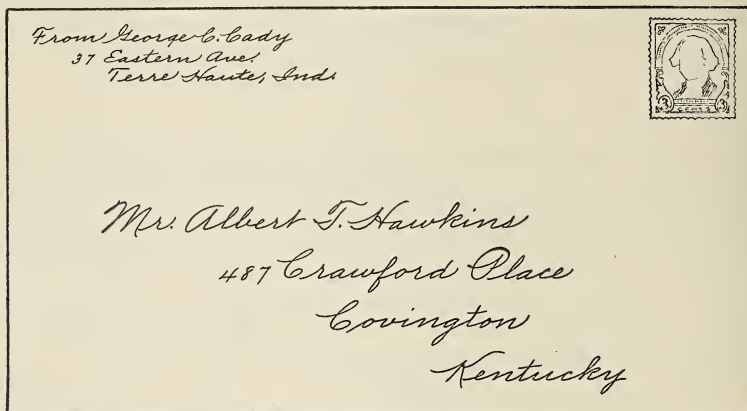 From George C. Cady
37 Eastern Ave.
Terre Haute, Ind.
3 CENTS 3
Mr. Albert T. Hawkins
487 Crawford Place
Covington
Kentucky